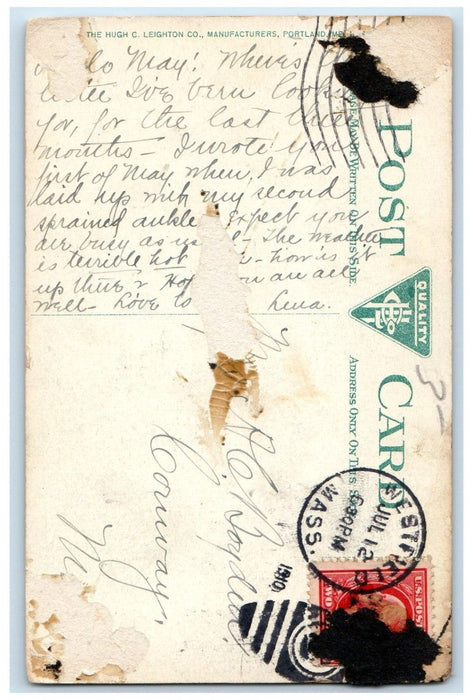 THE HUGH C. LEIGHTON CO., MANUFACTURERS, PORTLAND, ME.
lo May! Where's
I've been look
for, for the last three
months - I wrote you
first of May when, I was
laid up with my second
sprained ankle. Expect you
are busy as us l - The weather
is terrible hot - how is it
up there & Hope you are all
well - Love to
Lena.
POST CARD
MAY BE WRITTEN ON THIS SIDE
ADDRESS ONLY ON THIS S
QUALITY
H C L CO
H.C.
Conway,
M
WESTFIELD
JUL 12
6 30 PM
MASS.
1910
U.S. POST
TWO
3-